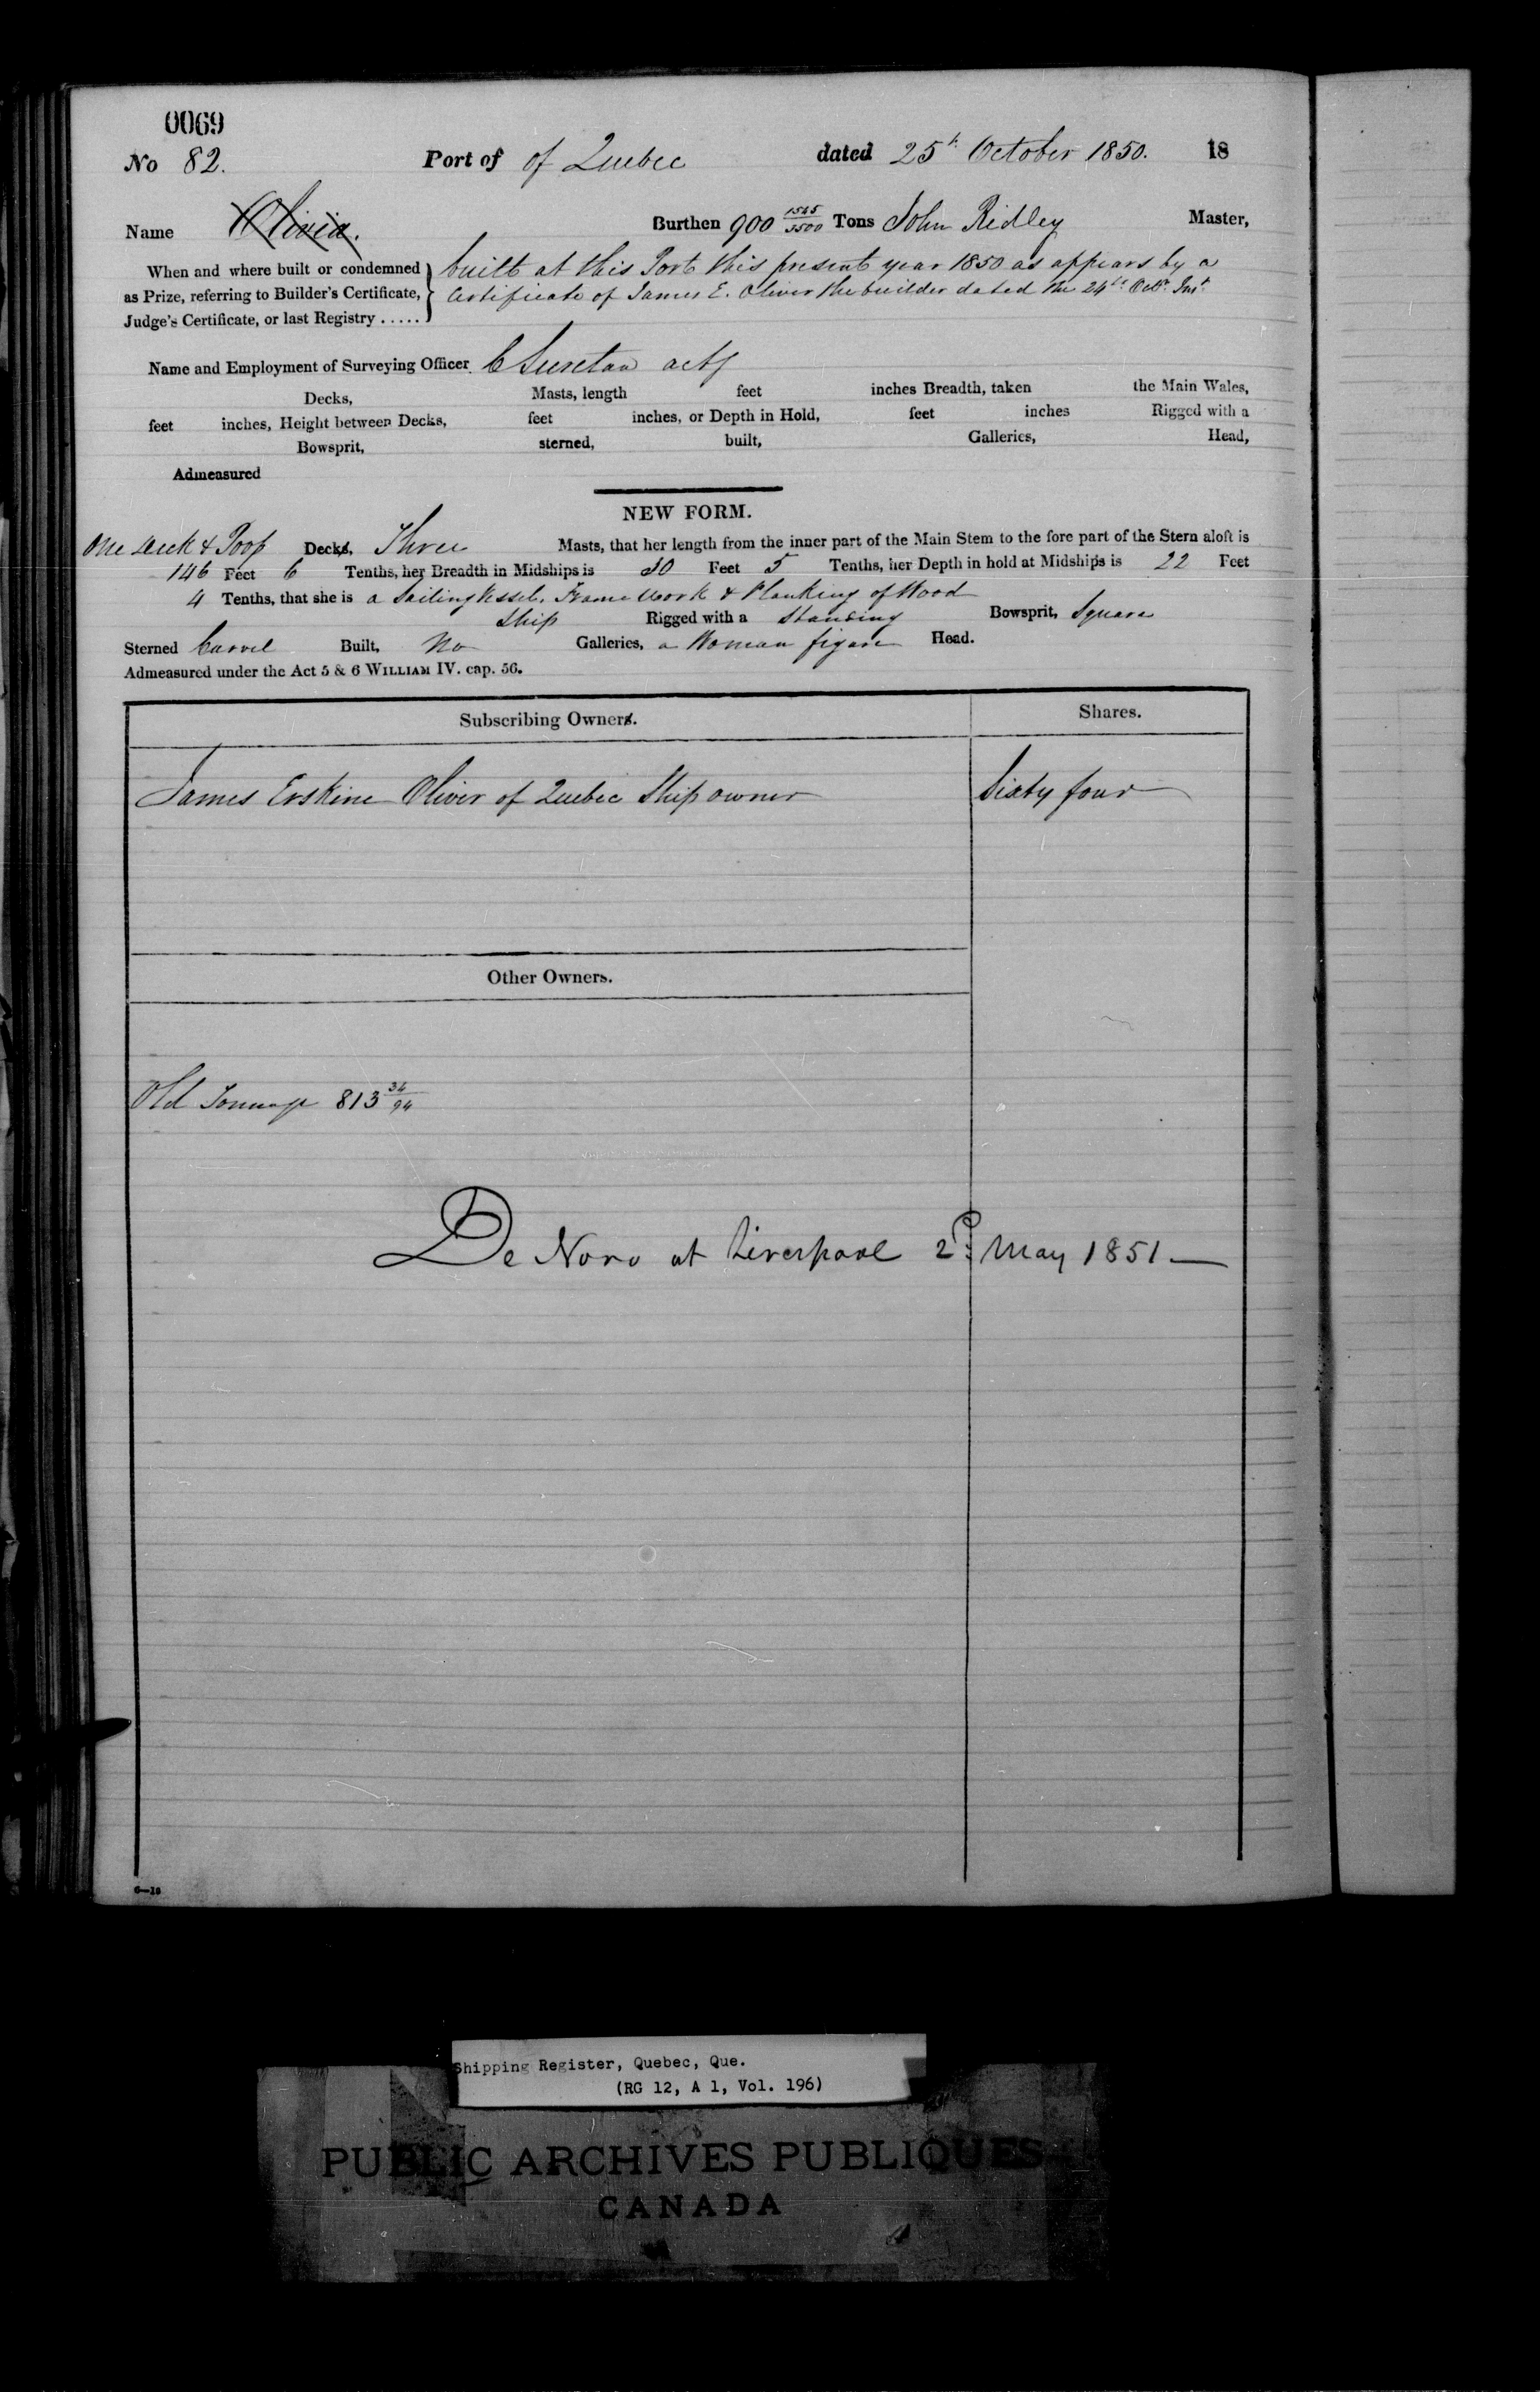 0069
No 82. Port of of Quebec dated 25th October 1850. 18
Name Olivia. Burthen 900 1545/3500 Tons John Ridley Master,
When and where built or condemned built at this Port this present year 1850 as appears by a
as Prize, referring to Builder's Certificate, Certificate of James E. Oliver the builder dated the 24th Octr. Inst.
Judge's Certificate, or last Registry .....
Name and Employment of Surveying Officer C
Decks, Masts, length feet inches Breadth, taken the Main Wales,
feet inches, Height between Decks, feet inches, or Depth in Hold, feet inches Rigged with a
Bowsprit, sterned, built, Galleries, Head,
Admeasured
NEW FORM.
One Deck & Poop Decks, Three Masts, that her length from the inner part of the Main Stem to the fore part of the Stern aloft is
146 Feet 6 Tenths, her Breadth in Midships is 30 Feet 5 Tenths, her Depth in hold at Midships is 22 Feet
4 Tenths, that she is a Sailing Vessel, Frame Work & Planking of Wood
Ship Rigged with a Standing Bowsprit, Square
Sterned Carvel Built, No Galleries, a Woman figure Head.
Admeasured under the Act 5 & 6 WILLIAM IV. cap. 56.
Subscribing Owners. Shares.
James Erskine Oliver of Quebec Ship owner Sixty four
Other Owners.
Old Tonnage 813 34/94
De Novo at Liverpool 2d. May 1851
6—10
Shipping Register, Quebec, Que.
(RG 12, A 1, Vol. 196)
PUBLIC ARCHIVES PUBLIQUES
CANADA